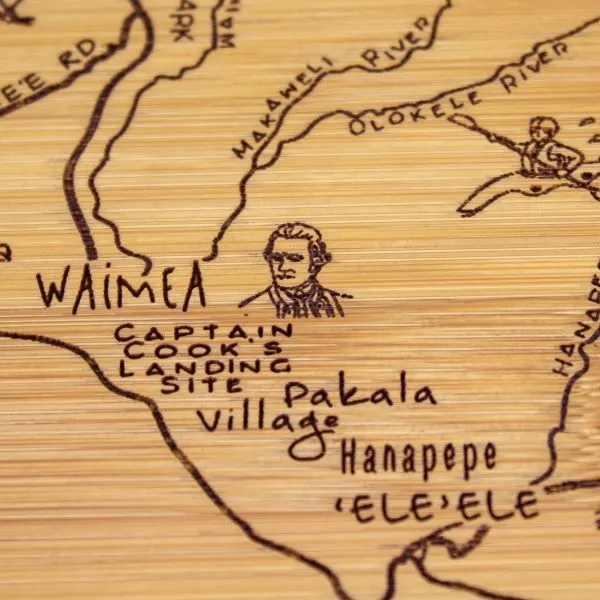 RD
MAKAWELI RIVER
OLOKELE RIVER
WAiMEA
CAPTAIN
COOK'S
LANDING
SITE
Pakala
Village
Hanapepe
'ELE'ELE